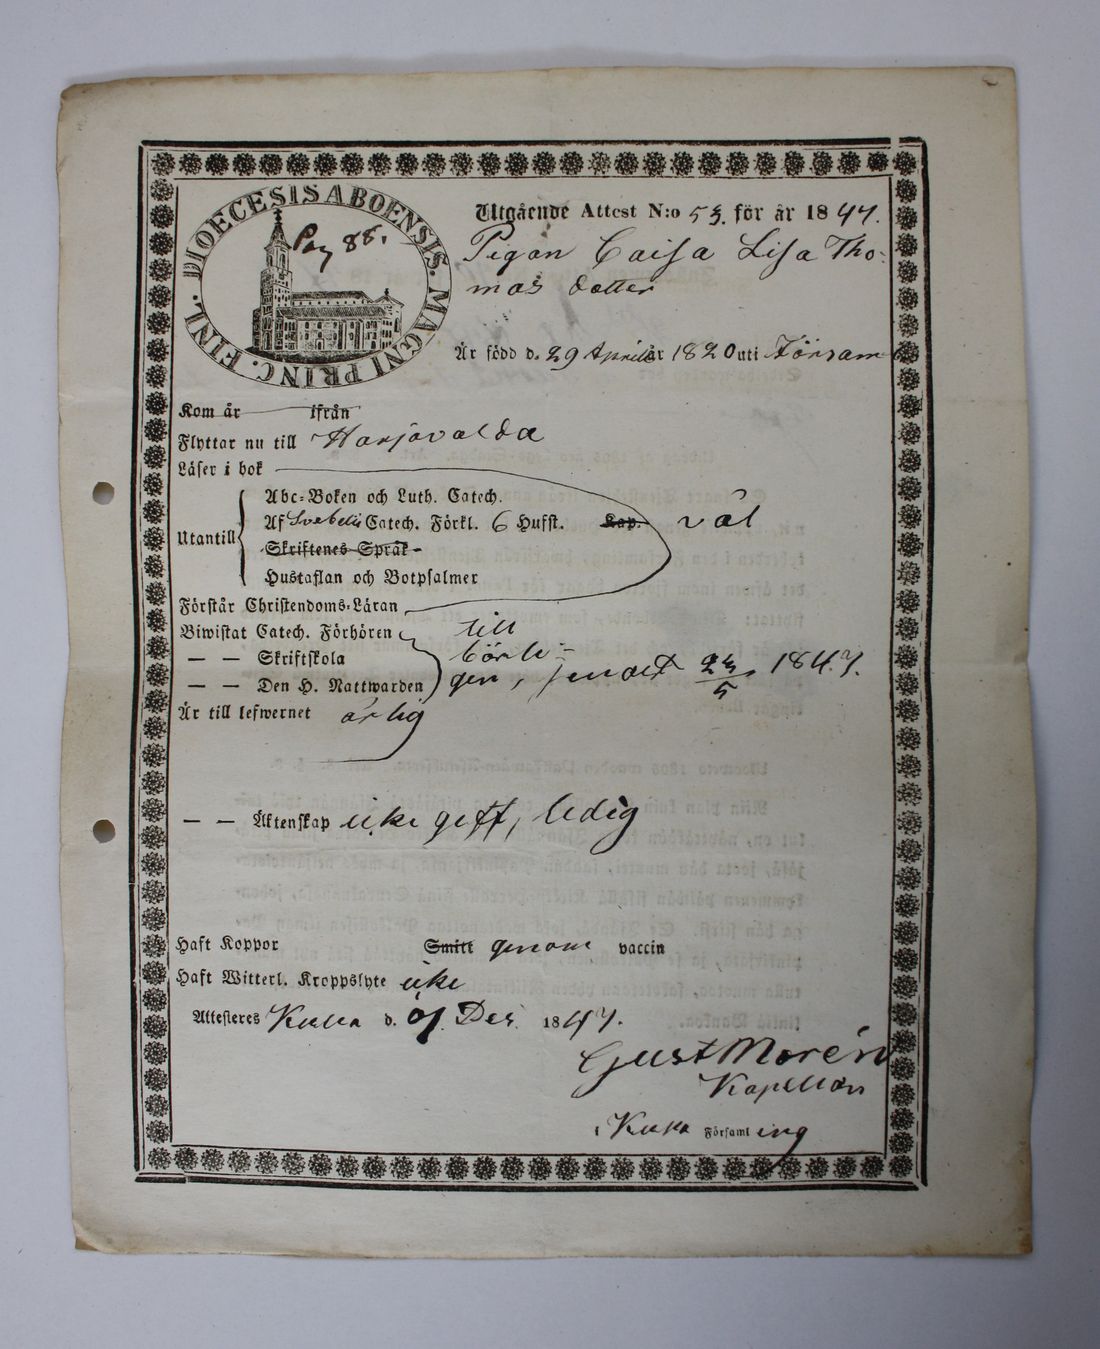 DIOECESIS ABOENSIS. MAGNI PRINC. FINL.
Pag 88.
Utgående Attest N:o 53. för år 1847.
Pigan Caisa Lisa Tho-
mas dotter
Är född d. 29 Aprill år 1820 uti Församl
Kom år ifrån
Flyttar nu till Harjavalda
Läser i bok
Utantill
Abc-Boken och Luth. Catech.
Af Svebelii Catech. Förkl. 6 Hufst. Kap. väl
Skriftenes Språk
Hustaflan och Botpsalmer
Förstår Christendoms-Läran
Biwistat Catech. Förhören till
— — Skriftskola börli-
— — Den H. Nattwarden gen, senast 23/5 1847.
Är till lefwernet ärlig
— — Äktenskap icke gift, ledig
Haft Koppor Smitt genom vaccin
Haft Witterl. Kroppslyte icke
Attesteres d. Dec. 1847.
Gust Morén
Kapellan
i Församling